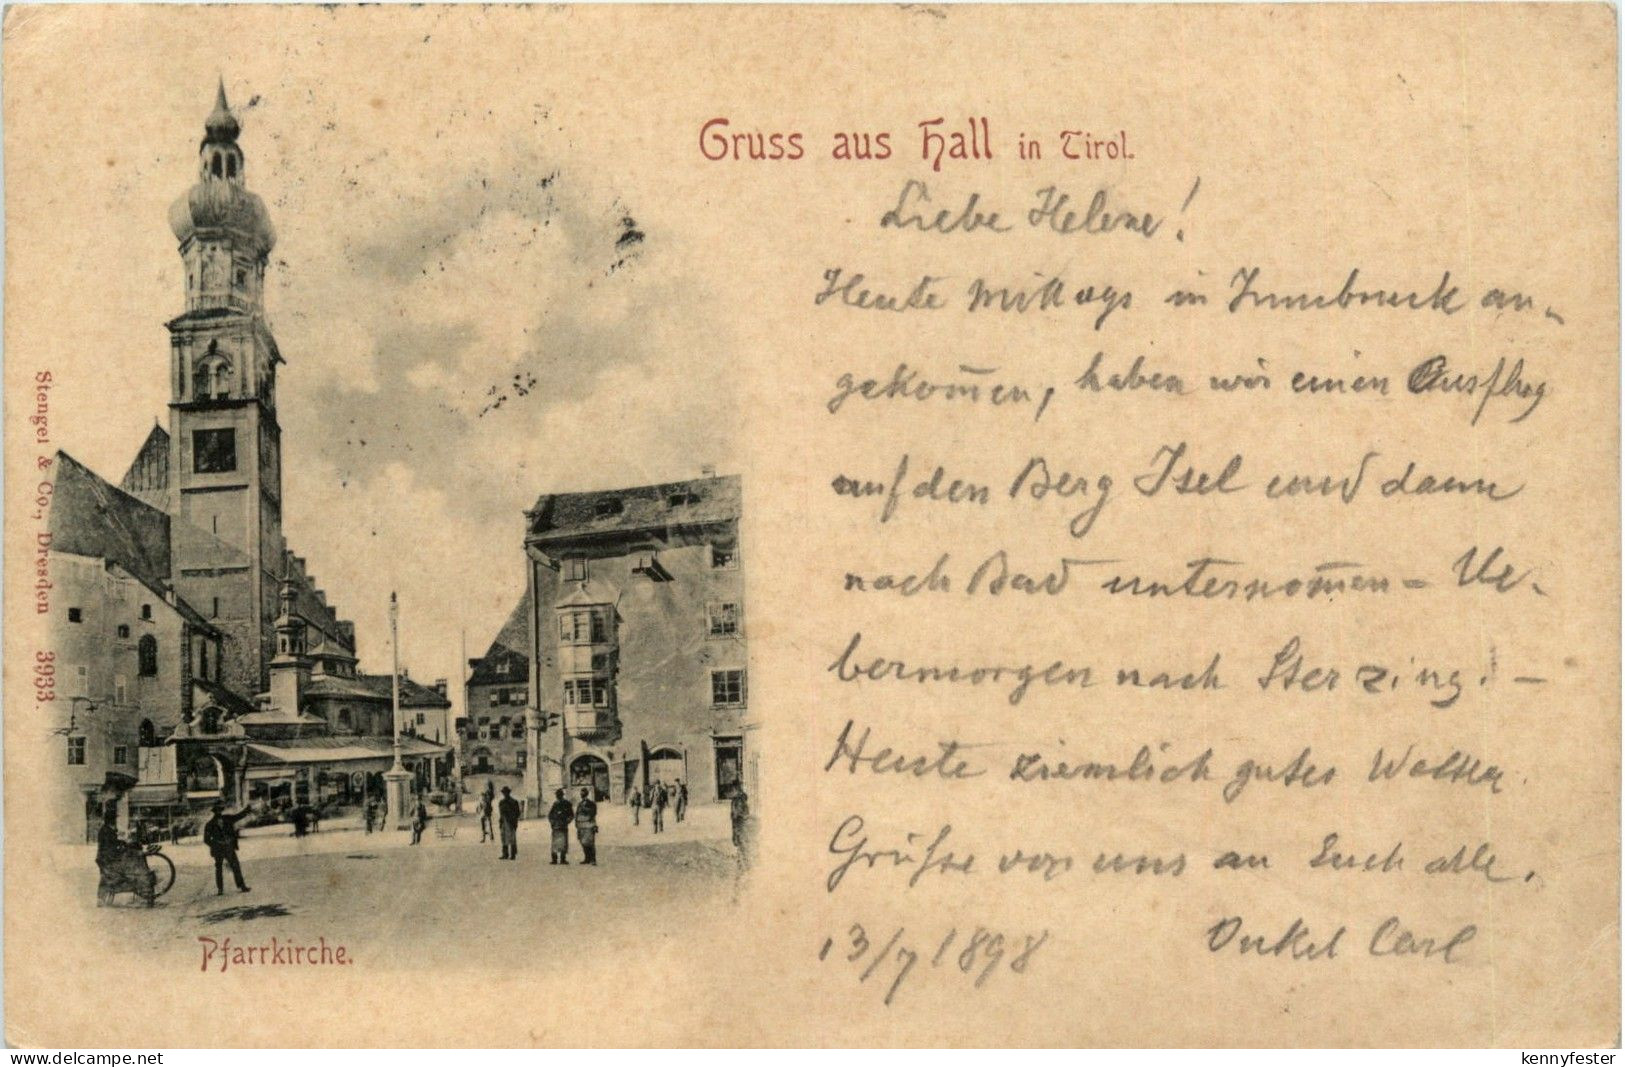 Gruss aus Hall in Tirol.
Liebe Helene!
Heute Mittags in Innsbruck an-
gekom̅en, haben wir einen Ausflug
auf den Berg Isel und dann
nach Bad unternom̅en - Ue-
bermorgen nach Sterzing! -
Heute ziemlich gutes Wetter.
Grüsse von uns an Euch alle.
13/7 1898 Onkel Carl
Pfarrkirche.
Stengel & Co., Dresden 3933.
www.delcampe.net
kennyfester